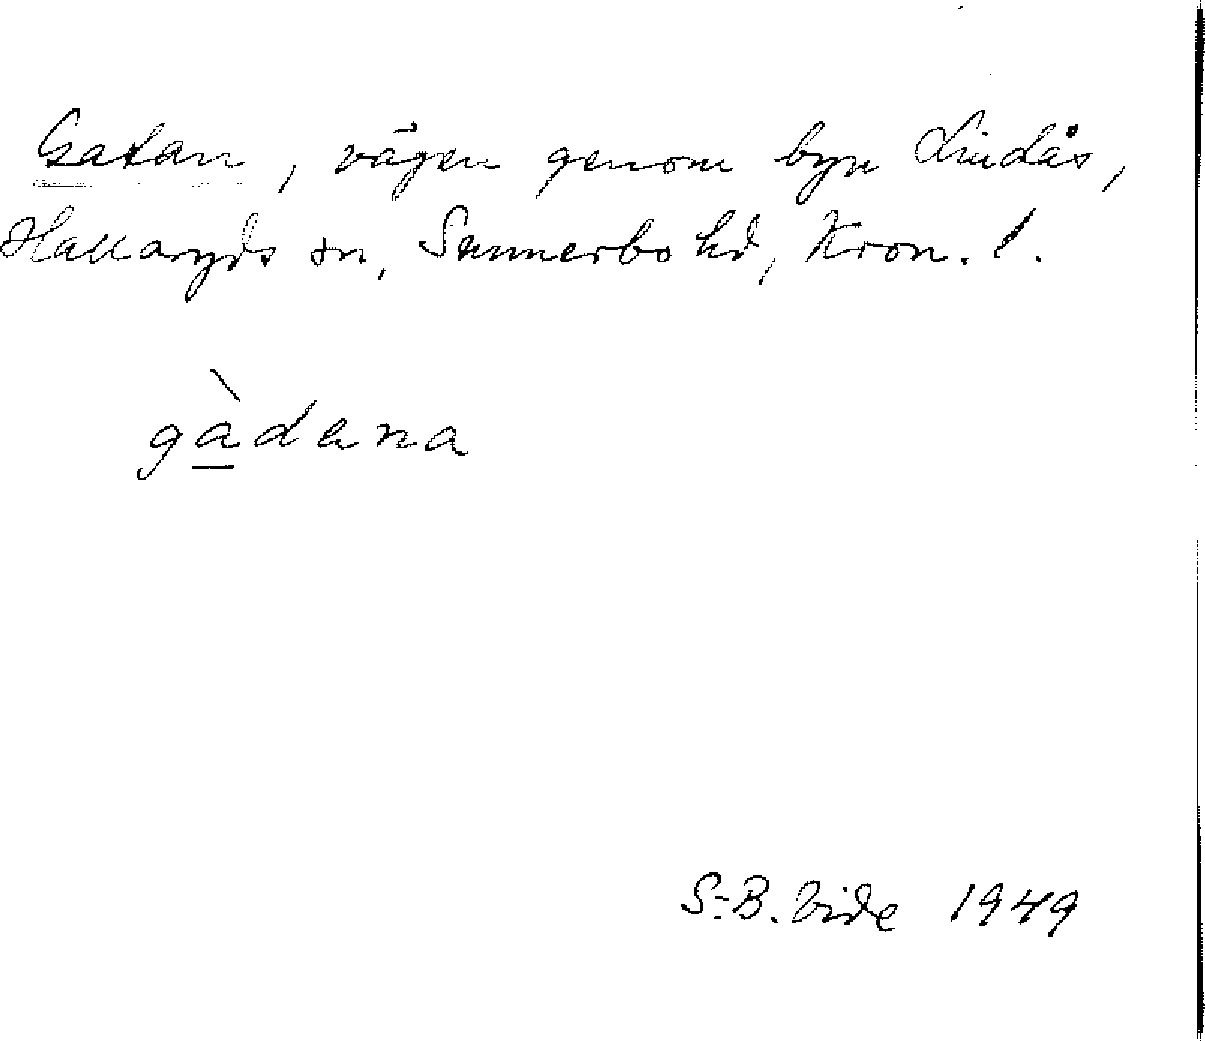 Gatan, vägen genom byn Lindås,
Hallaryds sn, Sunnerbo hd, Kron. l.
gàdana
S-B. Vide 1949